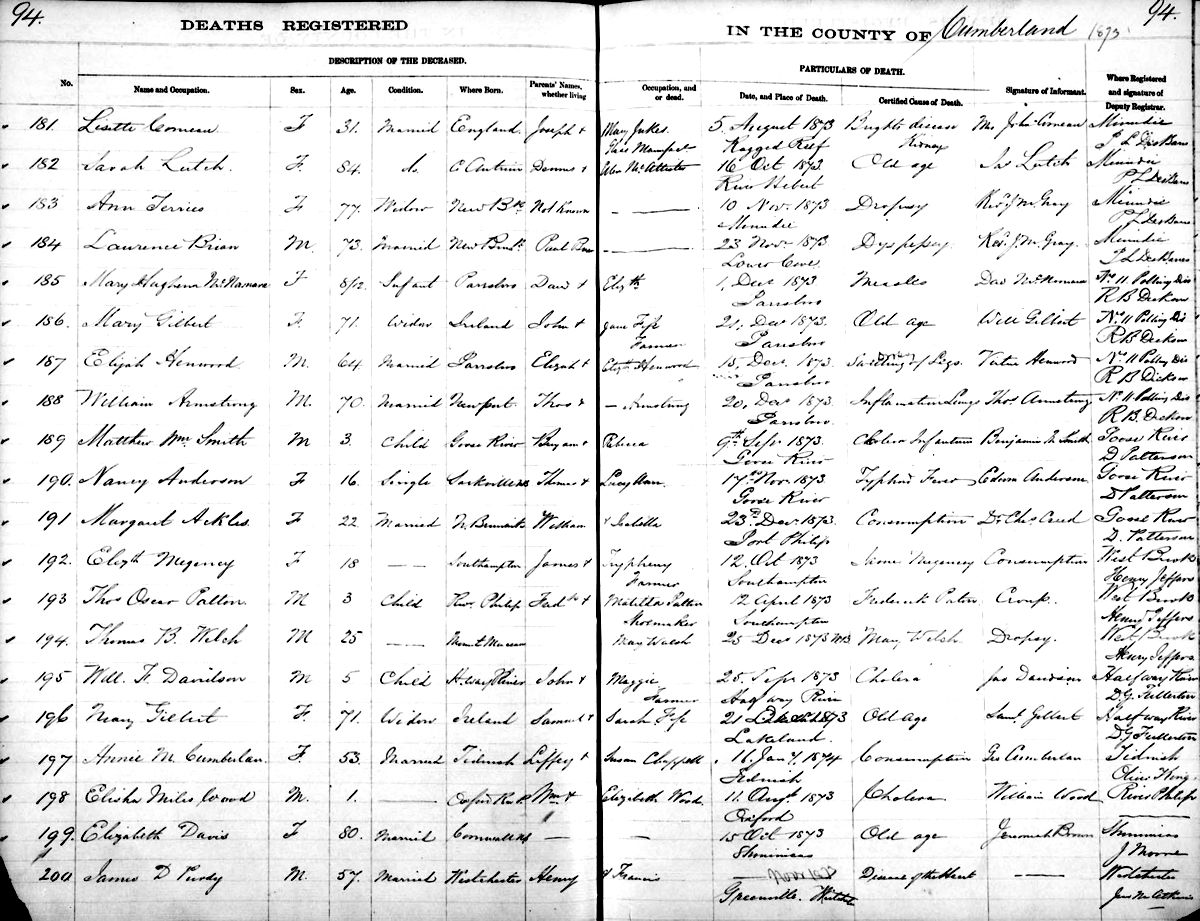 94.
DEATHS REGISTERED
IN THE COUNTY OF Cumberland 1873
94.
DESCRIPTION OF THE DECEASED.
PARTICULARS OF DEATH.
No. Name and Occupation. Sex. Age. Condition. Where Born. Parents' Names, whether living Occupation, and or dead. Date, and Place of Death. Certified Cause of Death. Signature of Informant. Where Registered and signature of Deputy Registrar.
181. Lisette Corneau F 31. Married England. Joseph + Mary Jukes. 5 August 1873 Brights disease Mrs John Corneau Minudie
Ragged Reef Kidney P L DesBarres
182 Sarah Lutch. F. 84. do. Dennis + 16 Oct 1873 Old age Jas Lutch Minudie
River Hebert P L DesBarres
183 Ann Ferries F 77. Widow New Bk Not Known — — 10 Nov. 1873 Dropsy Revd J M. Gray Minudie
Minudie P L DesBarres
184 Lawrence Brian M. 73. Married Paul 23 Nov 1873 Dyspepsy Rev. J. M. Gray. Minudie
Lower Cove P L DesBarres
185 Mary F 8/12. Infant Parrsboro Davd + Elizth 1, Dec 1873 Measles No. 11 Polling Dis
Parrsboro R B Dickson
186. Mary Gilbert F. 71. Widow Ireland John + Jane 21, Dec 1873. Old age Will Gilbert No. 11 Polling Dis
Farmer Parrsboro R B Dickson
187 Elijah Henwood M. 64. Married Parrsboro Elizah + Elizth Henwood 15, Dec 1873. Swelling of Legs. Henwood No 11 Polling Dis
Parrsboro R B Dickson
188 William Armstrong M. 70. Married Newport Thos + — Armstrong 20, Dec 1873. Inflamation Lungs Thos Armstrong No 11 Polling Dis
Parrsboro R B. Dickson
189 Matthew Wm Smith M 3. Child Goose River Benjam + Rebecca 9th Sep. 1873. Cholera Infantum Benjamin N Smith Goose River
Goose River D Patterson
190. Nancy Anderson F 16. Single Sackville NB Thomas + 17th Nov. 1873 Typhoid Fever Edwin Anderson Goose River
Goose River D Patterson
191. Margaret Ackles F. 22. Married N. Brunswick William + Isabella 23d Dec. 1873. Consumption Dr Chas Creed Goose River
Port Philip D. Patterson
192. Elizth Megeney F 18 — — Southampton James + Trypheny 12, Oct 1873 Megeney Consumption West Brook
Farmer Southampton Henry Jeffers
193 Thos Oscar Patton M 3 Child River Philip Fredk + Matilda Patton 12 April 1873 Frederick Paton Croup. West Brook
Shoemaker Southampton Henry Jeffers
194. Thomas B. Welch M 25 — — Mary Walsh 25 Dec 1873 Mary Welsh Dropsy. West Brook
Henry Jeffers
195 Will. F. Davidson M 5 Child H. way River John + Maggie 25. Sep. 1873 Cholera Jas Davidson Halfway River
Farmer Half way River D. G. Fullerton
196 Mary Gilbert F. 71. Widow Ireland Samuel + Sarah 21 1873 Old Age Saml Gilbert Halfway River
Lakeland. D. G Fullerton
197 Annie M. Cumberlan. F. 53. Married Tidnish Liffey + Susan Chappell 16. Jany. 1874 Consumption Cumberlan Tidnish
Tidnish Oliver King
198 Elisha Miles Wood M. 1. Wm + Elizabeth Wood. 11. Augst 1873 Cholera William Wood River Philip
Oxford
199. Elizabeth Davis F 80. Married Cornwallis — — 15 Oct 1873 Old age Jeremiah Brown Shinimicas
Shinimicas J Moore
200 James D Purdy M. 57. Married Westchester Henry + Francis Disease of the Heart — Westchester
Greenville.